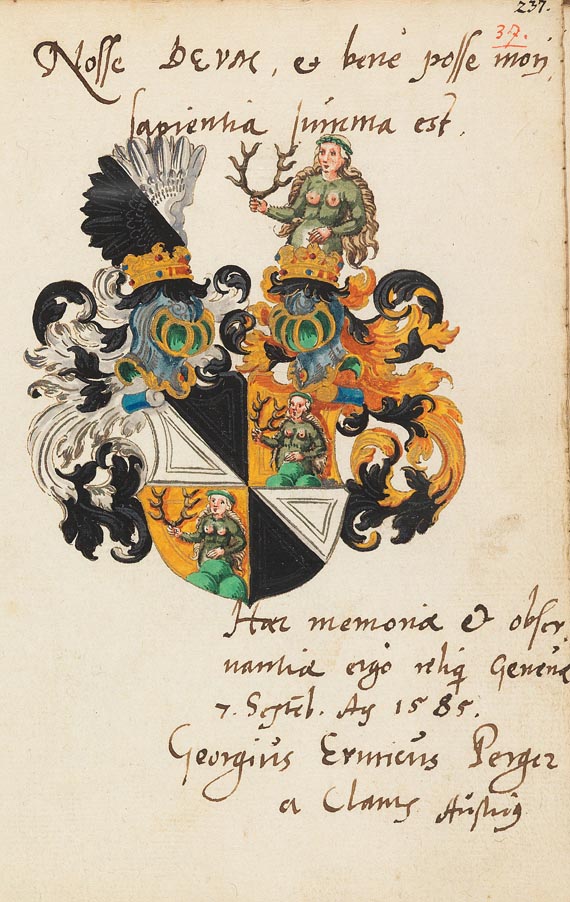 237.
37.
Nosse DEVM, et bene posse mori
sapientia summa est.
Haec memoriae et obser,
vantiae ergo reliq Genevae
7. Septēb. Aº 1585.
Georgius Perger
a Clam Austrius